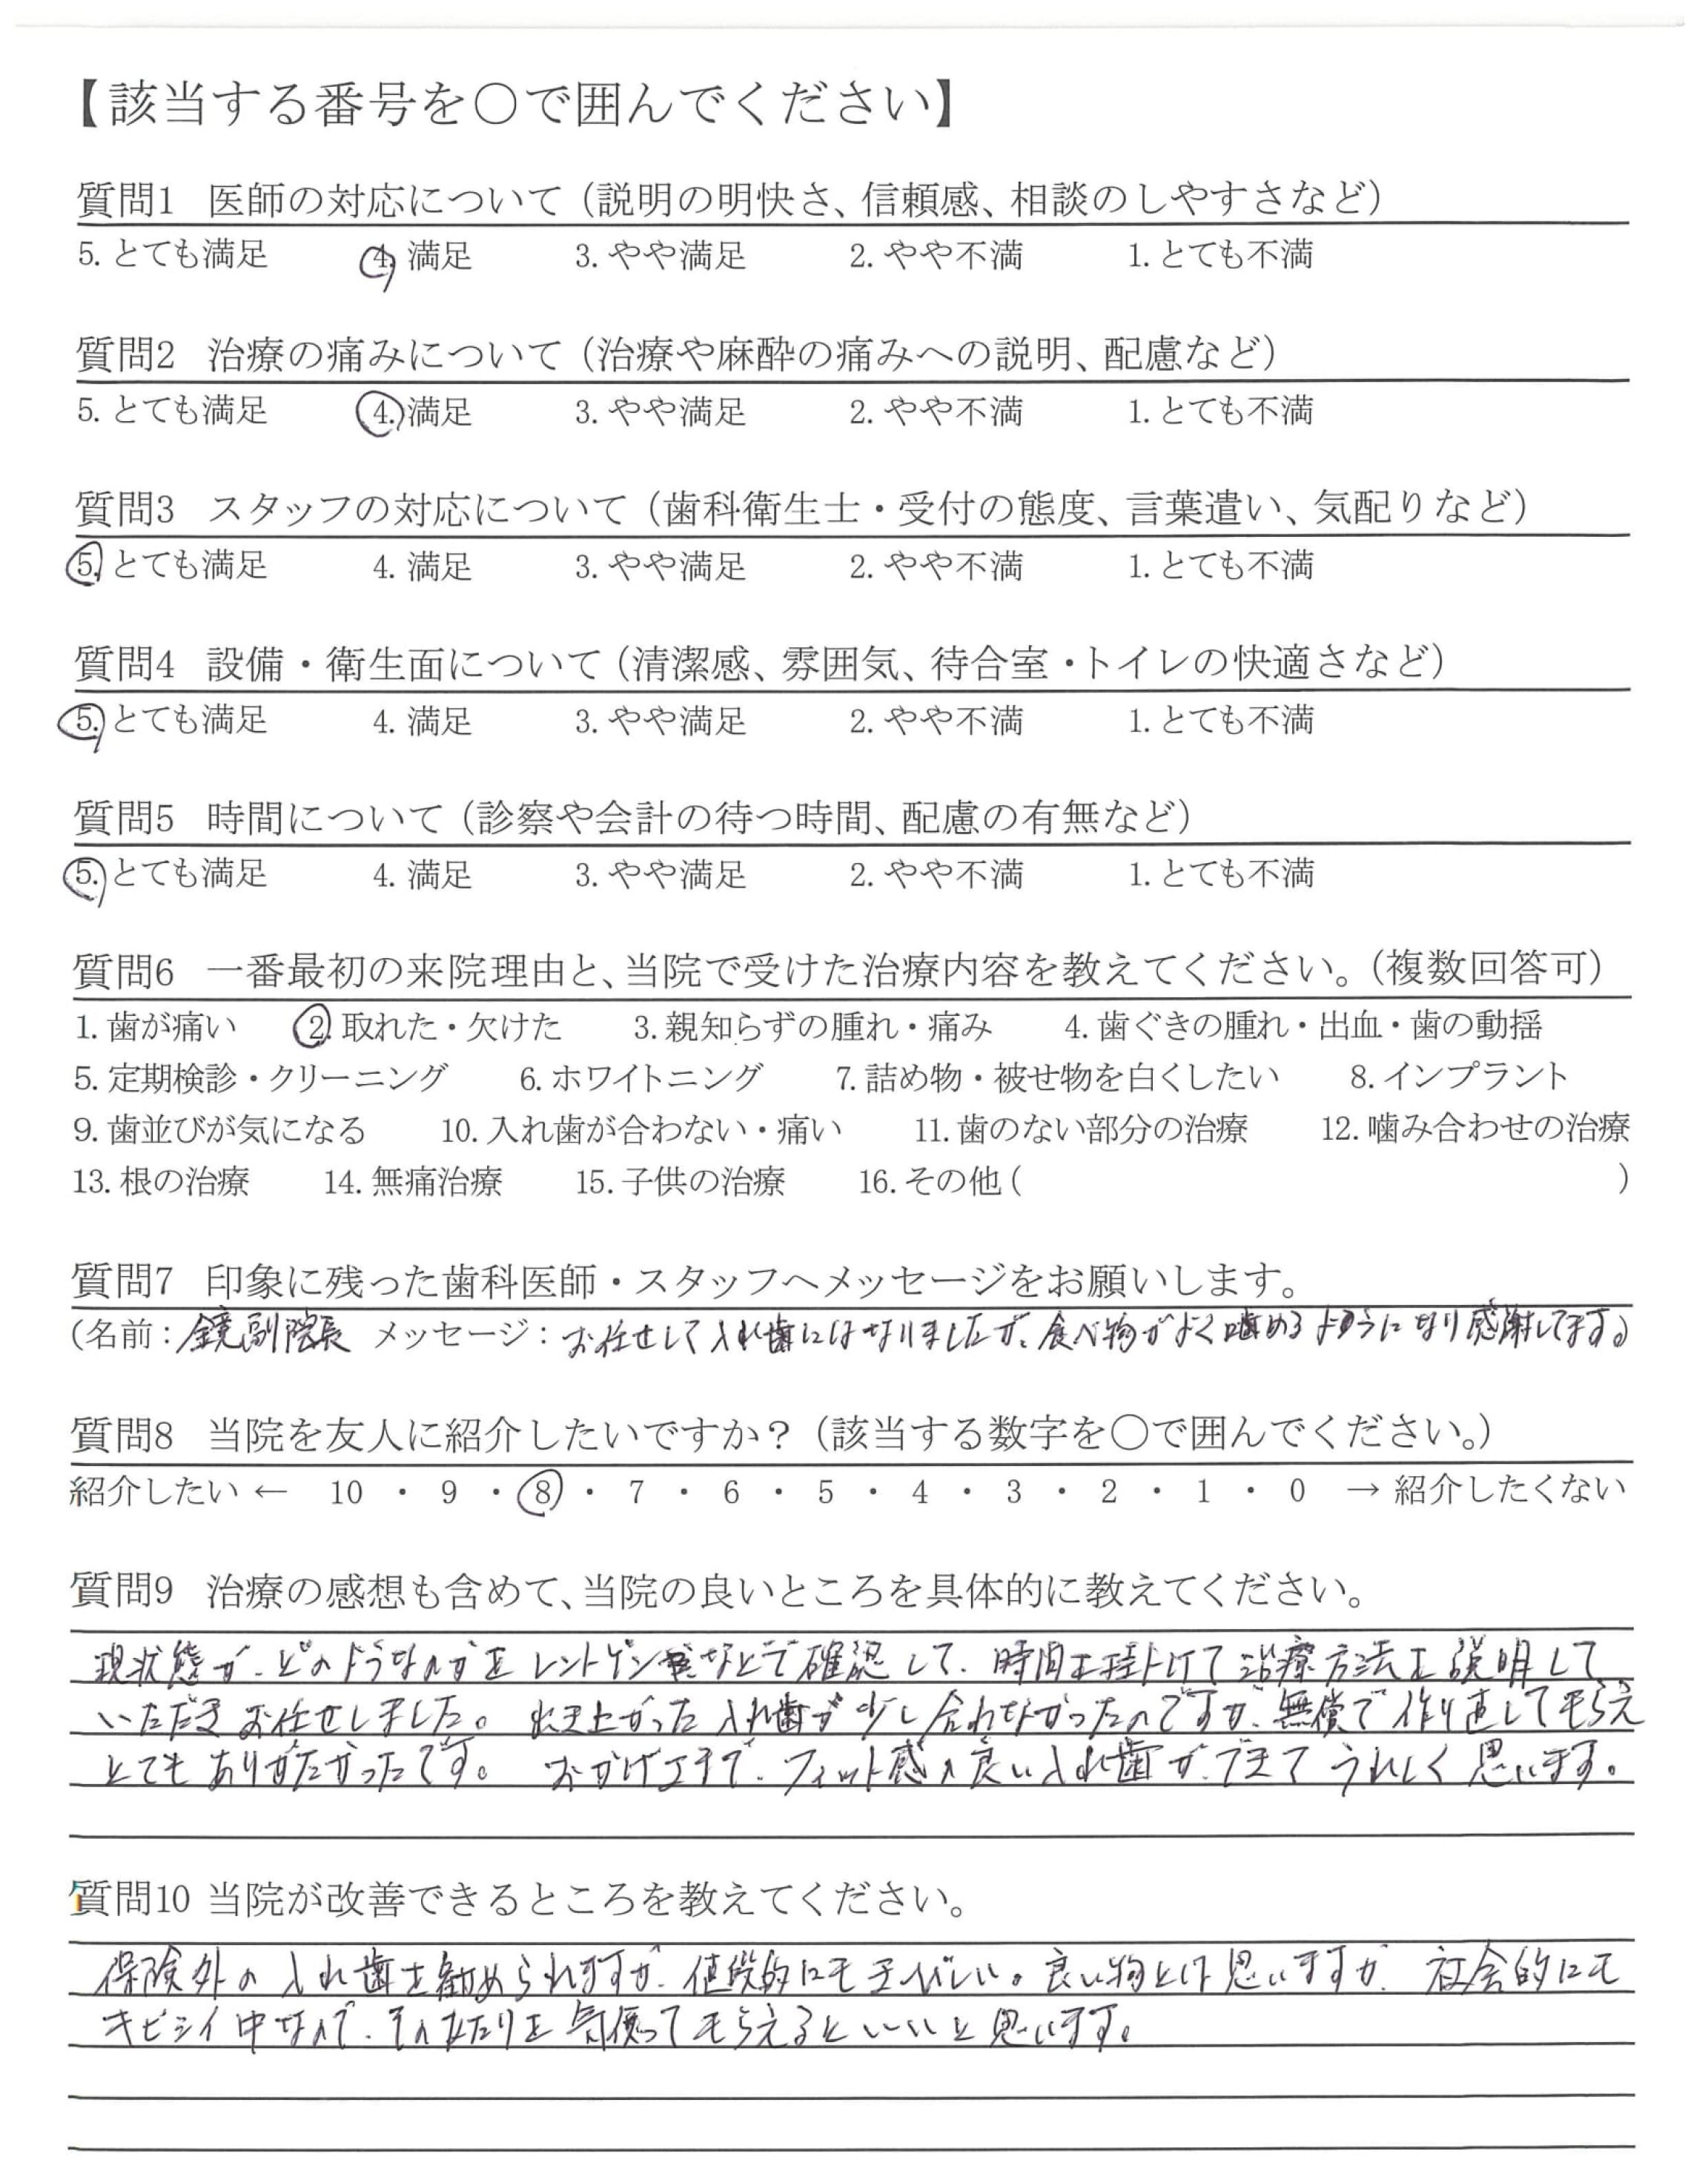 【該当する番号を〇で囲んでください】
質問1 医師の対応について（説明の明快さ、信頼感、相談のしやすさなど）
5. とても満足 4. 満足 3. やや満足 2. やや不満 1. とても不満
質問2 治療の痛みについて（治療や麻酔の痛みへの説明、配慮など）
5. とても満足 4. 満足 3. やや満足 2. やや不満 1. とても不満
質問3 スタッフの対応について（歯科衛生士・受付の態度、言葉遣い、気配りなど）
5. とても満足 4. 満足 3. やや満足 2. やや不満 1. とても不満
質問4 設備・衛生面について（清潔感、雰囲気、待合室・トイレの快適さなど）
5. とても満足 4. 満足 3. やや満足 2. やや不満 1. とても不満
質問5 時間について（診察や会計の待つ時間、配慮の有無など）
5. とても満足 4. 満足 3. やや満足 2. やや不満 1. とても不満
質問6 一番最初の来院理由と、当院で受けた治療内容を教えてください。（複数回答可）
1. 歯が痛い 2. 取れた・欠けた 3. 親知らずの腫れ・痛み 4. 歯ぐきの腫れ・出血・歯の動揺
5. 定期検診・クリーニング 6. ホワイトニング 7. 詰め物・被せ物を白くしたい 8. インプラント
9. 歯並びが気になる 10. 入れ歯が合わない・痛い 11. 歯のない部分の治療 12. 噛み合わせの治療
13. 根の治療 14. 無痛治療 15. 子供の治療 16. その他（ ）
質問7 印象に残った歯科医師・スタッフへメッセージをお願いします。
（名前：鏡副院長 メッセージ：お任せして入れ歯にはなりましたが、食べ物がよく噛めるようになり感謝してます。）
質問8 当院を友人に紹介したいですか？（該当する数字を〇で囲んでください。）
紹介したい ← 10 ・ 9 ・ 8 ・ 7 ・ 6 ・ 5 ・ 4 ・ 3 ・ 2 ・ 1 ・ 0 → 紹介したくない
質問9 治療の感想も含めて、当院の良いところを具体的に教えてください。
現状態が、どのようなのかをレントゲンなどで確認して、時間を掛けて治療方法を説明して
いただきお任せしました。 出来上がった入れ歯が少し合わなかったのですが、無償で作り直してもらえ
とてもありがたかったです。 おかげさまで、フィット感の良い入れ歯ができてうれしく思います。
質問10 当院が改善できるところを教えてください。
保険外の入れ歯を勧められますが、値段的にもきびしい。良い物とは思いますが、社会的にも
キビシイ中なので、そのあたりを気使ってもらえるといいと思います。